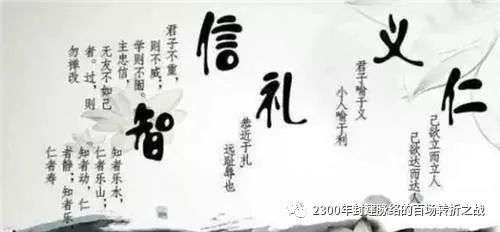 仁
己欲立而立人
己欲达而达人
义
君子喻于义
小人喻于利
礼
恭近于礼,
远耻辱也
信
君子不重,
则不威;
学则不固。
主忠信,
无友不如己
者。过,则
勿惮改
智
知者乐水,
仁者乐山;
知者动,仁
者静;知者乐,
仁者寿
2300年封建脉络的百场转折之战